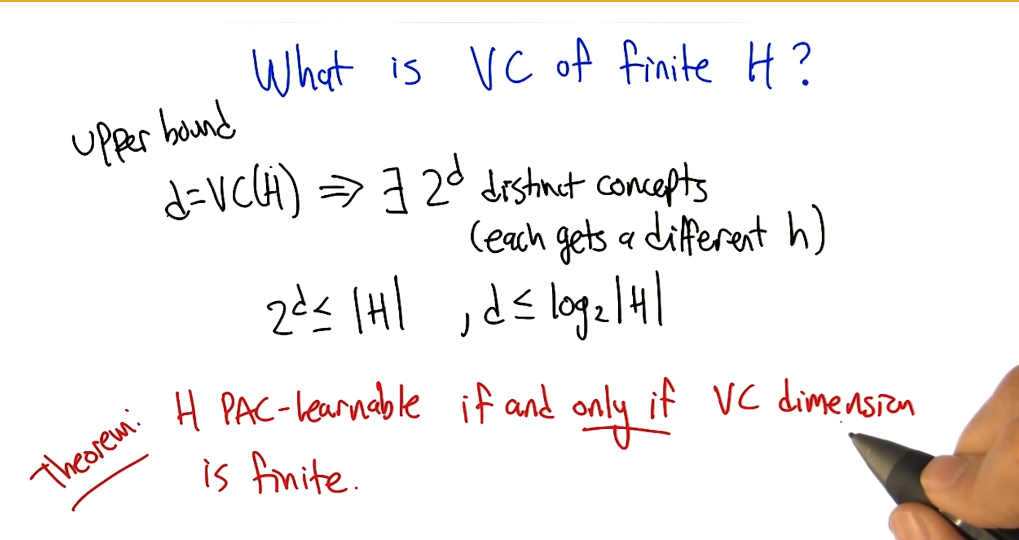 What is VC of finite H?
upper bound
d=VC(H) ⇒ ∃ 2^d distinct concepts
(each gets a different h)
2^d ≤ |H| , d ≤ log₂|H|
Theorem: H PAC-learnable if and only if VC dimension
is finite.